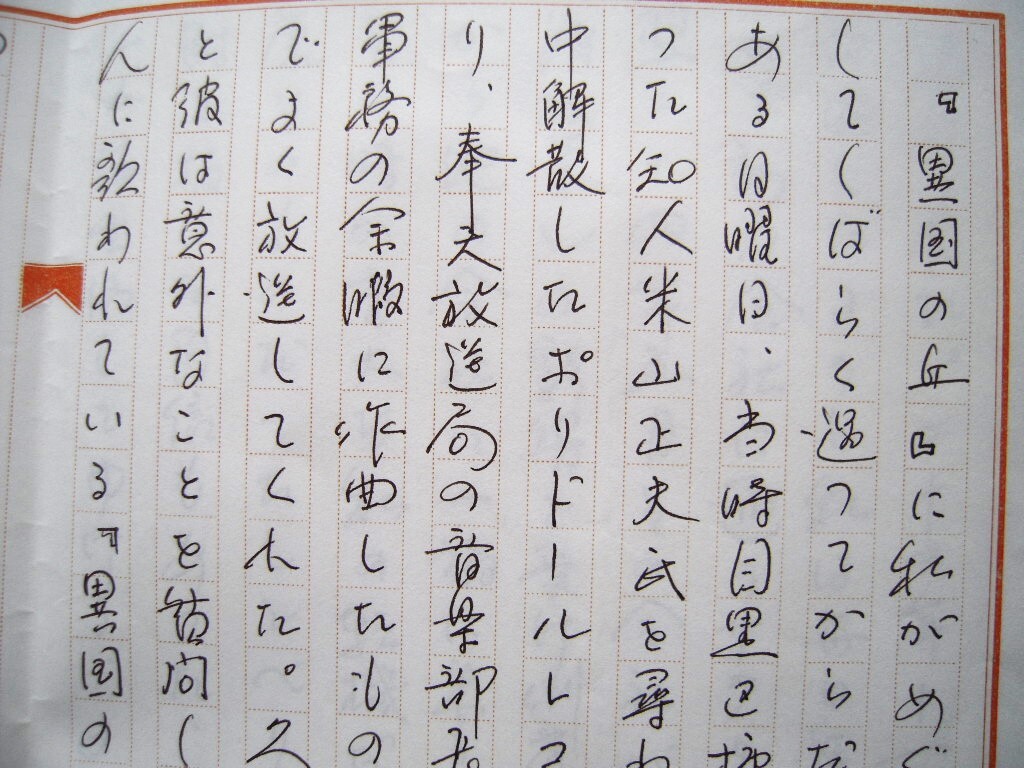 『異国の丘』に私がめぐ
してしばらく過ってからだ
ある日曜日、当時目黒区柿
った知人米山正夫氏を尋ね
中解散したポリドールレコ
り、奉天放送局の音楽部
軍務の余暇に作曲したもの
でよく放送してくれた。久
と彼は意外なことを詰問し
んに歌われている『異国の